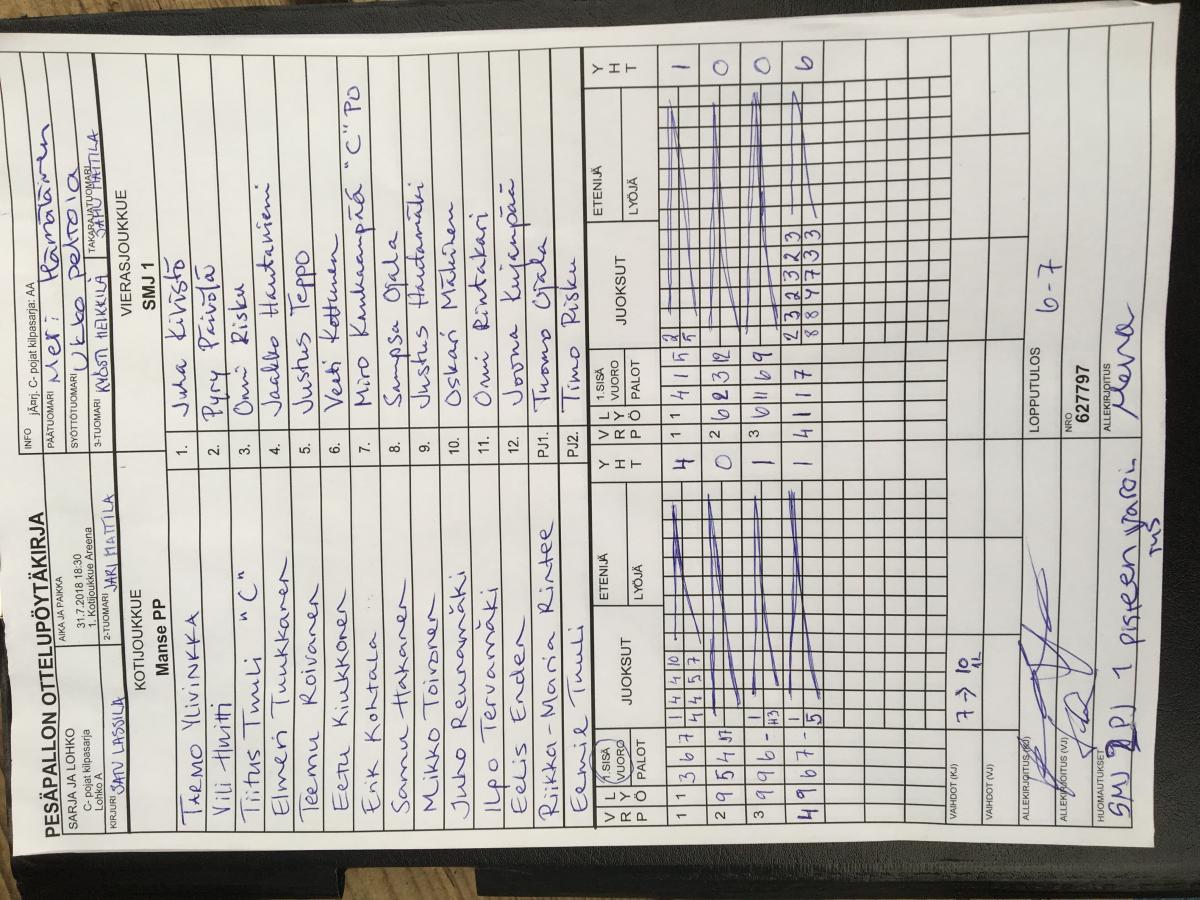 PESÄPALLON OTTELUPÖYTÄKIRJA
SARJA JA LOHKO
C- pojat kilpasarja
Lohko A
AIKA JA PAIKKA
31.7.2018 18:30
1. Kotijoukkue Areena
INFO jÄ¤rj. C- pojat kilpasarja: AA
PÄÄTUOMARI Meri Hämäläinen
SYÖTTÖTUOMARI Ukko Peltola
KIRJURI SATU LASSILA
2-TUOMARI JARI MATTILA
3-TUOMARI KYÖSTI HEIKKILÄ
TAKARAJATUOMARI SAMU MATTILA
KOTIJOUKKUE
Manse PP
VIERASJOUKKUE
SMJ 1
TARMO YLIVINKKA 1. Juha Kivistö
Vili Huitti 2. Pyry Päivölä
Tiitus Tuuli "C" 3. Onni Risku
Elmeri Tuukkanen 4. Jaakko Hautaniemi
Teemu Roivanen 5. Justus Teppo
Eetu Kiukkonen 6. Veeti Kettunen
Erik Kohtala 7. Miro Kaukaanpää "C" PO
Samu Hakanen 8. Sampsa Ojala
Mikko Toivonen 9. Justus Hautamäki
Juho Reunamäki 10. Oskari Mäkinen
Ilpo Tervamäki 11. Onni Rintakari
Eelis Enden 12. Joona Kujanpää
Riikka-Maria Rintee PJ1. Tuomo Ojala
Eemil Tuuli PJ2. Timo Risku
VRP LYÖ 1.SISÄ VUORO PALOT JUOKSUT ETENIJÄ LYÖJÄ YHT
VRP LYÖ 1.SISÄ VUORO PALOT JUOKSUT ETENIJÄ LYÖJÄ YHT
1 1 3 6 7 1 4 4 10 4
4 4 5 7
1 1 4 1 5 2 1
5
2 9 5 4 0
2 6 2 3 12 0
3 9 9 6 - 1 1
3 6 11 6 9 0
4 9 6 7 - 1 1
5
4 1 1 7 2 3 2 3 2 3 6
8 8 4 7 3 3
VAIHDOT (KJ) 7 → 10
12
VAIHDOT (VJ)
ALLEKIRJOITUS (KJ)
LOPPUTULOS 6-7
ALLEKIRJOITUS (VJ)
NRO
627797
HUOMAUTUKSET
SMJ PJ 1 pisteen varoitus
ALLEKIRJOITUS